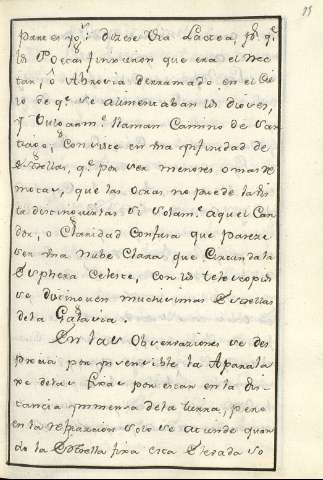 parece. Dizese Via Lactea, pr. q.e
los Poetas finxieron que era el Nec
tar, o Ambrosia derramado en el Cie
lo de q.e se alimentaban los dioses,
y Vulgarm.te llaman Camino de San
tiago, Consiste en una infinidad de
Estrellas, q.e por ser menores o mas re
motas, que las Otras no puede la Vis
ta distinguirlas si solam.te aquel Can
dor, o Claridad Confusa que parece
ser una Nube Clara que Circunda la
Esphera Celeste, Con los telescopios
se distinguen muchissimas Estrellas
de la Galaxia.
En las Observaciones se des
precia por insensible la Parala
xe de las fixas por estar en la dis
tancia inmensa de la tierra, pero
en la refraccion solo se atiende quan
do la Estrella fixa esta Elevada so